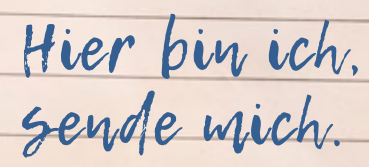 Hier bin ich,
sende mich.